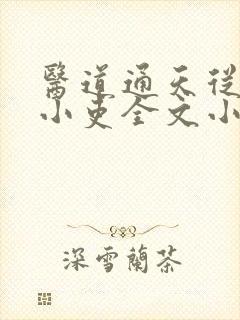 醫道通天從
小吏全文小
深雪蘭茶